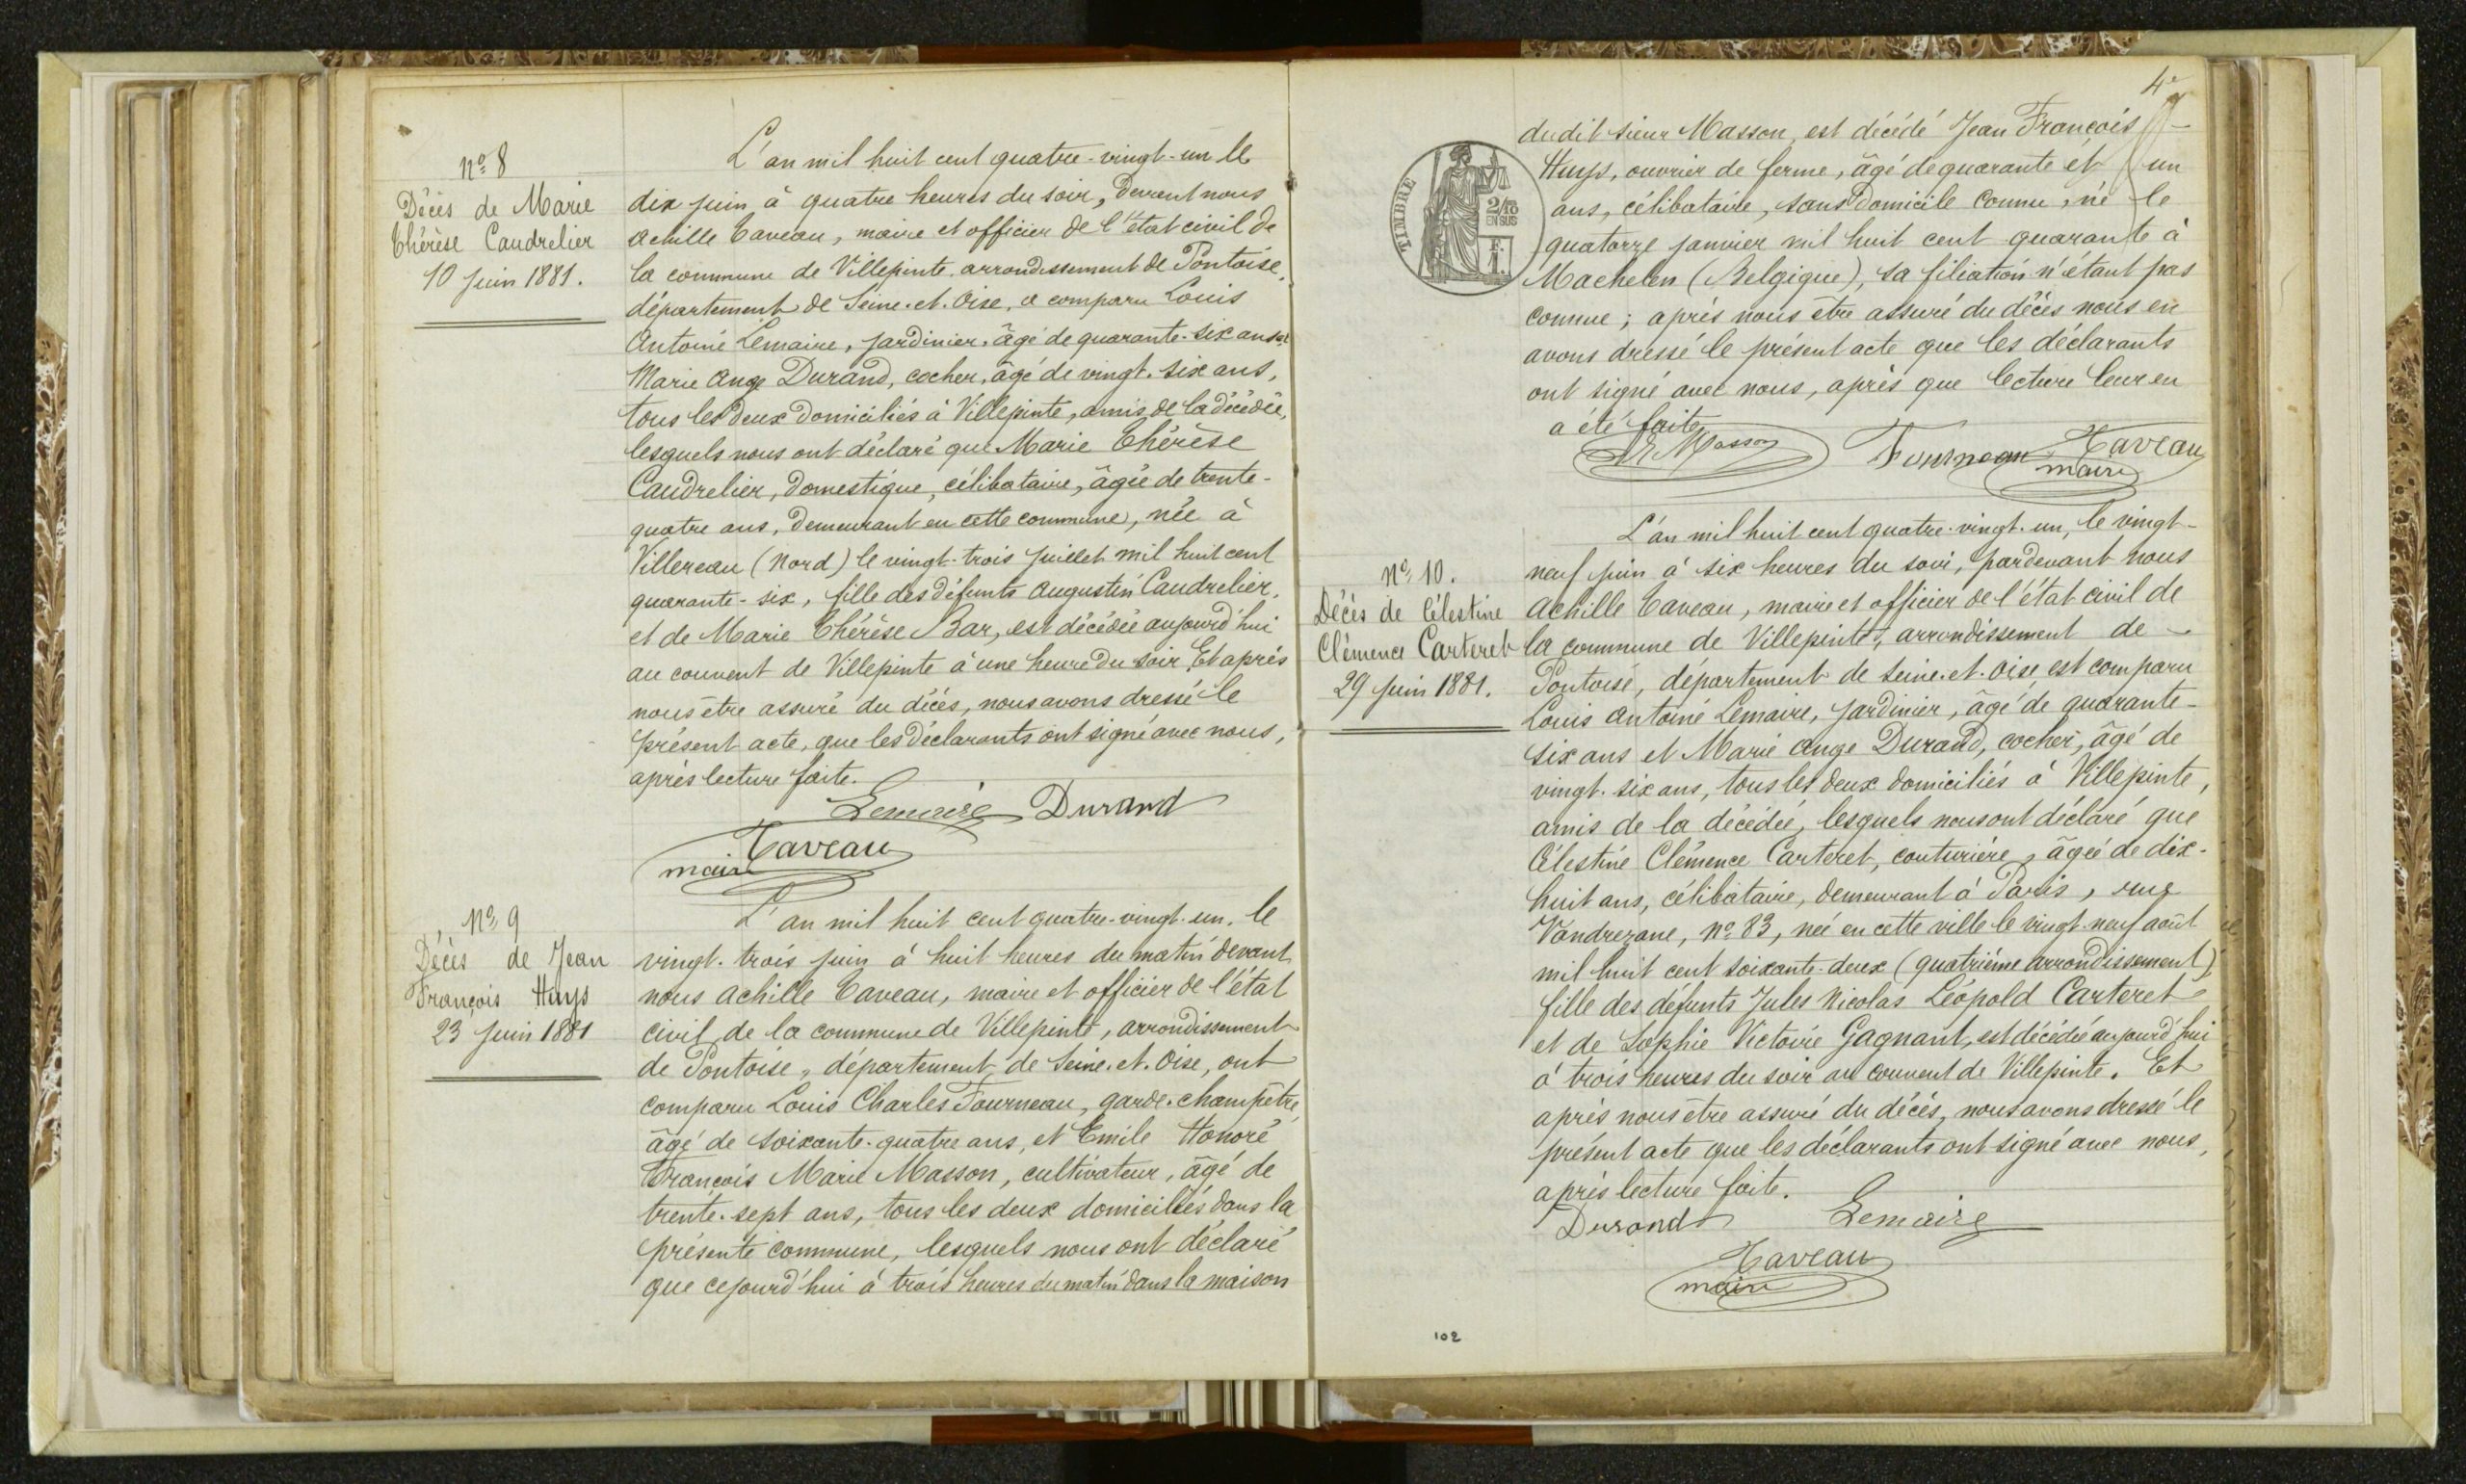 Nº 8
Décès de Marie
Thérèse Caudrelier
10 Juin 1881.
L'an mil huit cent quatre-vingt-un le
dix juin à quatre heures du soir, devant nous
Achille Taveau, maire et officier de l'état civil de
la commune de Villepinte arrondissement de Pontoise,
département de Seine-et-Oise, a comparu Louis
Antoine Lemaire, jardinier, âgé de quarante-six ans et
Marie Ange Durand, cocher, âgé de vingt-six ans,
tous les deux domiciliés à Villepinte, amis de la décédée,
lesquels nous ont déclaré que Marie Thérèse
Caudrelier, domestique, célibataire, âgée de trente-
quatre ans, demeurant en cette commune, née à
Villereau (Nord) le vingt-trois juillet mil huit cent
quarante-six, fille des défunts Augustin Caudrelier,
et de Marie Thérèse Bar, est décédée aujourd'hui
au couvent de Villepinte à une heure du soir. Et après
nous être assuré du décès, nous avons dressé le
présent acte, que les déclarants ont signé avec nous,
après lecture faite.
Lemaire Durand
Taveau
maire
Nº 9
Décès de Jean
François Huys
23 Juin 1881
L'an mil huit cent quatre-vingt-un, le
vingt-trois juin à huit heures du matin devant
nous Achille Taveau, maire et officier de l'état
civil de la commune de Villepinte, arrondissement
de Pontoise, département de Seine-et-Oise, ont
comparu Louis Charles Fourneau, garde-champêtre,
âgé de soixante-quatre ans, et Emile Honoré
François Marie Masson, cultivateur, âgé de
trente-sept ans, tous les deux domiciliés dans la
présente commune, lesquels nous ont déclaré
que cejourd'hui à trois heures du matin dans la maison
4e
TIMBRE
2/10
EN SUS
dudit sieur Masson, est décédé Jean François
Huys, ouvrier de ferme, âgé de quarante et un
ans, célibataire, sans domicile connu, né le
quatorze janvier mil huit cent quarante à
Machelen (Belgique), sa filiation n'étant pas
connue; après nous être assuré du décès nous en
avons dressé le présent acte que les déclarants
ont signé avec nous, après que lecture leur en
a été faite.
Masson Fourneau Taveau
maire
Nº 10.
Décès de Célestine
Clémence Carteret
29 Juin 1881.
L'an mil huit cent quatre-vingt-un, le vingt-
neuf juin à six heures du soir, pardevant nous
Achille Taveau, maire et officier de l'état civil de
la commune de Villepinte, arrondissement de
Pontoise, département de Seine-et-Oise, est comparu
Louis Antoine Lemaire, jardinier, âgé de quarante-
six ans et Marie Ange Durand, cocher, âgé de
vingt-six ans, tous les deux domiciliés à Villepinte,
amis de la décédée, lesquels nous ont déclaré que
Célestine Clémence Carteret, couturière, âgée de dix-
huit ans, célibataire, demeurant à Paris, rue
Vandrezane, nº 83, née en cette ville le vingt-neuf août
mil huit cent soixante-deux (quatrième arrondissement)
fille des défunts Jules Nicolas Léopold Carteret
et de Sophie Victoire Gagnant, est décédée aujourd'hui
à trois heures du soir au couvent de Villepinte. Et
après nous être assuré du décès, nous avons dressé le
présent acte que les déclarants ont signé avec nous,
après lecture faite.
Durand Lemaire
Taveau
maire
102